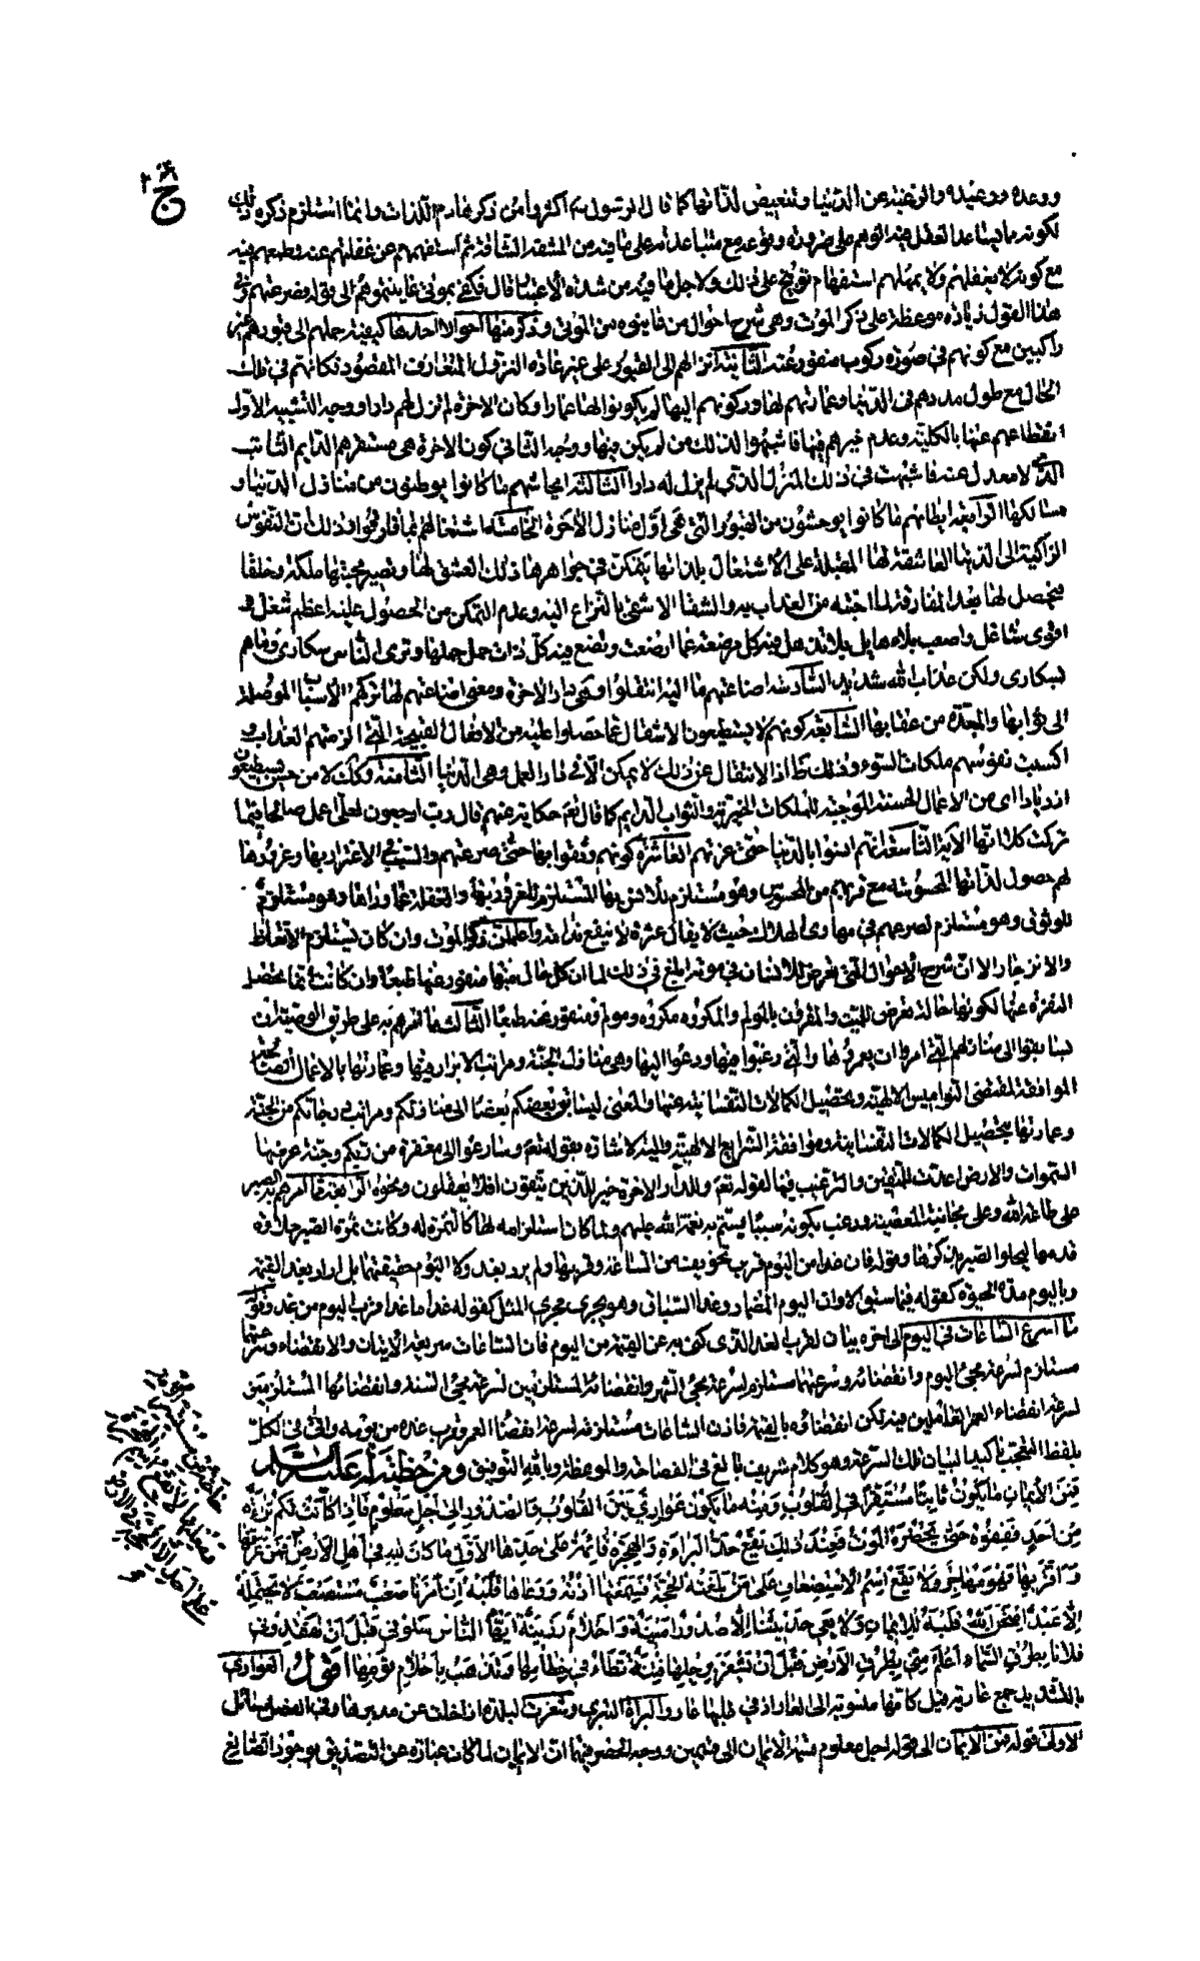 ووعده ووعيده والرغبة عن الدنيا وتنغيص لذاتها كما قال الرسول ص أكثروا من ذكر هادم اللذات وانما استلزم ذكره ذلك
لكونه مما يساعد العقل فيه الوهم على ضرورة وقوعه مع مساعدته على ما فيه من المشقة الشاقة ثم استفهمهم عن غفلتهم عنه وطمعهم فيه
مع كونه لا يغفلهم ولا يمهلهم استفهام توبيخ على ذلك ولاجل ما فيه من شدة الاعتبار قال فكفى بموتى عاينتموهم الى قوله فصرعتهم وفي
هذا القول زيادة موعظة على ذكر الموت وهي شرح احوال من عاينوه من الموتى وذكر منها احوالا احدها كيفية حملهم الى قبورهم غير
راكبين مع كونهم في صورة ركوب منفور عنه الثانية انزالهم الى القبور على غير عادة النزول المتعارف المقصود فكانهم في تلك
الحال مع طول مددهم في الدنيا وعمارتهم لها وركونهم اليها لم يكونوا لها عمارا وكان الاخرة لم تزل لهم دارا ووجه التشبيه الاول
انقطاعهم عنها بالكلية وعدم خيرهم فيها فاشبهوا لذلك من لم يكن فيها ووجه الثاني كون الاخرة هي مستقرهم الدايم الثابت
الذي لا معدل عنه فاشبهت في ذلك المنزل الذي لم يزل له دارا الثالثة ايحاشهم ما كانوا يوطنون من منازل الدنيا و
مسالكها الرابعة ايطانهم ما كانوا يوحشون من القبور التي هي اول منازل الاخرة الخامسة اشتغالهم بما فارقوا وذلك ان النفوس
الراكنة الى الدنيا العاشقة لها المقبلة على الاشتغال بلذاتها يتمكن في جواهرها ذلك العشق لها وتصير محبتها ملكة وخلقا
فيحصل لها بعد المفارقة لما احبته من العذاب به والشقا الاشقى بالنزاع اليه وعدم التمكن من الحصول عليه اعظم شغل هو
اقوى شاغل واصعب بلاء هايل بلا تذهل فيه كل مرضعة عما ارضعت وتضع فيه كل ذات حمل حملها وترى الناس سكارى وما هم
بسكارى ولكن عذاب الله شديد السادسة اضاعتهم ما اليه انتقلوا وهي دار الاخرة ومعنى اضاعتهم لها تركهم الاسباب الموصلة
الى ثوابها والمبعدة من عقابها السابعة كونهم لا يستطيعون الانتقال عما حصلوا عليه من الافعال القبيحة التي الزمتهم العذاب و
اكسبت نفوسهم ملكات السوء وذلك ظ اذ الانتقال عن ذلك لا يمكن الا في دار العمل وهي الدنيا الثامنة وكك لا من حسن يستطيعون
ازديادا اي من الاعمال الحسنة الموجبة للملكات الخيرية والثواب الدايم كما قال تعم حكاية عنهم قال رب ارجعون لعلي اعمل صالحا فيما
تركت كلا انها الاية التاسعة انهم انسوا بالدنيا حتى غرتهم العاشرة كونهم وثقوا بها حتى صرعتهم والسبب في الاغترار بها وغرورها
لهم حصول لذاتها المحسوسة مع قربهم من المحسوس وهو مستلزم للانس بها المستلزم للغرور بها والغفلة عما وراها وهو مستلزم
للوثوق وهو مستلزم لصرعهم في مهاوى الهلاك حيث لا يقال عثرة ولا ينفع ندامة واعلم ان ذكر الموت وان كان يستلزم الاتعاظ
والانزجار الا ان شرح الاحوال التي تعرض للانسان في موته ابلغ في ذلك لما ان كل حال منها منفور عنها طبعا وان كانت انما تحصل
النفرة عنها لكونها حالة تعرض للميت والمقرون بالمولم والمكروه مكروه ومولم ومنفور عنه طبعا الثالث ما امرهم به على طريق الوصية ان
يسابقوا الى منازلهم التي امروا ان يعمروها والتي رغبوا فيها ودعوا اليها وهي منازل الجنة ومراتب الابرار فيها وعمارتها بالاعمال الصالحة
الموافقة لمقتضى النواميس الالهية وتحصيل الكمالات النفسانية عنها والمعنى ليسابق بعضكم بعضا الى منازلكم ومراتب درجاتكم من الجنة
وعمارتها بتحصيل الكمالات النفسانية وموافقة الشرايع الالهية واليه الاشارة بقوله تعم وسارعوا الى مغفرة من ربكم وجنة عرضها
السموات والارض اعدت للمتقين والترغيب فيها لقوله تعم وللدار الاخرة خير للذين يتقون افلا يعقلون ونحوه الرابع امرهم بالصبر
على طاعة الله وعلى مجانبة المعصية ورغب بكونه سببا يستتم به نعمة الله عليهم ولما كان استلزامه لها كالثمرة له وكانت ثمرة الصبر حلاوة
قدمها ليحلوا الصبر بذكرها وقوله فان غدا من اليوم قريب تخويف من الساعة وقربها ولم يرد بغد ولا اليوم حقيقتهما بل اراد بغد القيمة
وباليوم مدة الحيوة كقوله فيما سبق الا وان اليوم المضمار وغدا السباق وهو يجري مجرى المثل كقوله غدا ما غدا قرب اليوم من غد وقوله
ما اسرع الساعات في اليوم الى اخره بيان لقرب الغد الذي كنى به عن القيمة من اليوم فان الساعات سريعة الاتيان والانقضاء وسرعتها
مستلزم لسرعة مجئ اليوم وانقضائه وسرعتهما مستلزم لسرعة مجئ الشهر وانقضائه المستلزمين لسرعة مجئ السنة وانقضائها المستلزمين
لسرعة انقضاء العمر العاملين فيه لكن انقضاؤه بالقيمة فاذن الساعات مستلزمة لسرعة انقضا العمر وقرب غده من يومه واتى في الكل
بلفظ التعجب تاكيدا لبيان تلك السرعة وهو كلام شريف بالغ في الفصاحة والموعظة وبالله التوفيق ومن خطبة له عليه السلام
فَمِنَ الْإيمانِ مَا يَكُونُ ثَابِتًا مُسْتَقِرًّا فِي الْقُلُوبِ وَمِنْهُ مَا يَكُونُ عَوَارِيَ بَيْنَ الْقُلُوبِ وَالصُّدُورِ إِلَى أَجَلٍ مَعْلُومٍ فَإِذَا كَانَتْ لَكُمْ بَرَاءَةٌ
مِنْ أَحَدٍ فَقِفُوهُ حَتَّى يَحْضُرَهُ الْمَوْتُ فَعِنْدَ ذَلِكَ يَقَعُ حَدُّ الْبَرَاءَةِ وَالْهِجْرَةُ قَائِمَةٌ عَلَى حَدِّهَا الْأَوَّلِ مَا كَانَ لِلَّهِ فِي أَهْلِ الْأَرْضِ فَمَنْ عَرَفَهَا
وَأَقَرَّ بِهَا فَهُوَ مُهَاجِرٌ وَلَا يَقَعُ اسْمُ الِاسْتِضْعَافِ عَلَى مَنْ بَلَغَتْهُ الْحُجَّةُ فَسَمِعَتْهَا أُذُنُهُ وَوَعَاهَا قَلْبُهُ إِنَّ أَمْرَنَا صَعْبٌ مُسْتَصْعَبٌ لَا يَحْتَمِلُهُ
إِلَّا عَبْدٌ امْتَحَنَ اللَّهُ قَلْبَهُ لِلْإِيمَانِ وَلَا يَعِي حَدِيثَنَا إِلَّا صُدُورٌ أَمِينَةٌ وَأَحْلَامٌ رَزِينَةٌ أَيُّهَا النَّاسُ سَلُونِي قَبْلَ أَنْ تَفْقِدُونِي
فَلَأَنَا بِطُرُقِ السَّمَاءِ أَعْلَمُ مِنِّي بِطُرُقِ الْأَرْضِ قَبْلَ أَنْ تَشْغَرَ بِرِجْلِهَا فِتْنَةٌ تَطَأُ فِي خِطَامِهَا وَتَذْهَبُ بِأَحْلَامِ قَوْمِهَا أقول العواري
بالتشديد جمع عارية قيل كانها منسوبة الى العار اذ في طلبها عار والبراة التبري وشغرت البلدة اذا خلت عن مدبرها وفي الفصل مسائل
الاولى قوله فمن الايمان الى قوله اجل معلوم قسمة الايمان الى قسمين ووجه الحصر فيهما ان الايمان لما كان عبارة عن التصديق بوجود الصانع